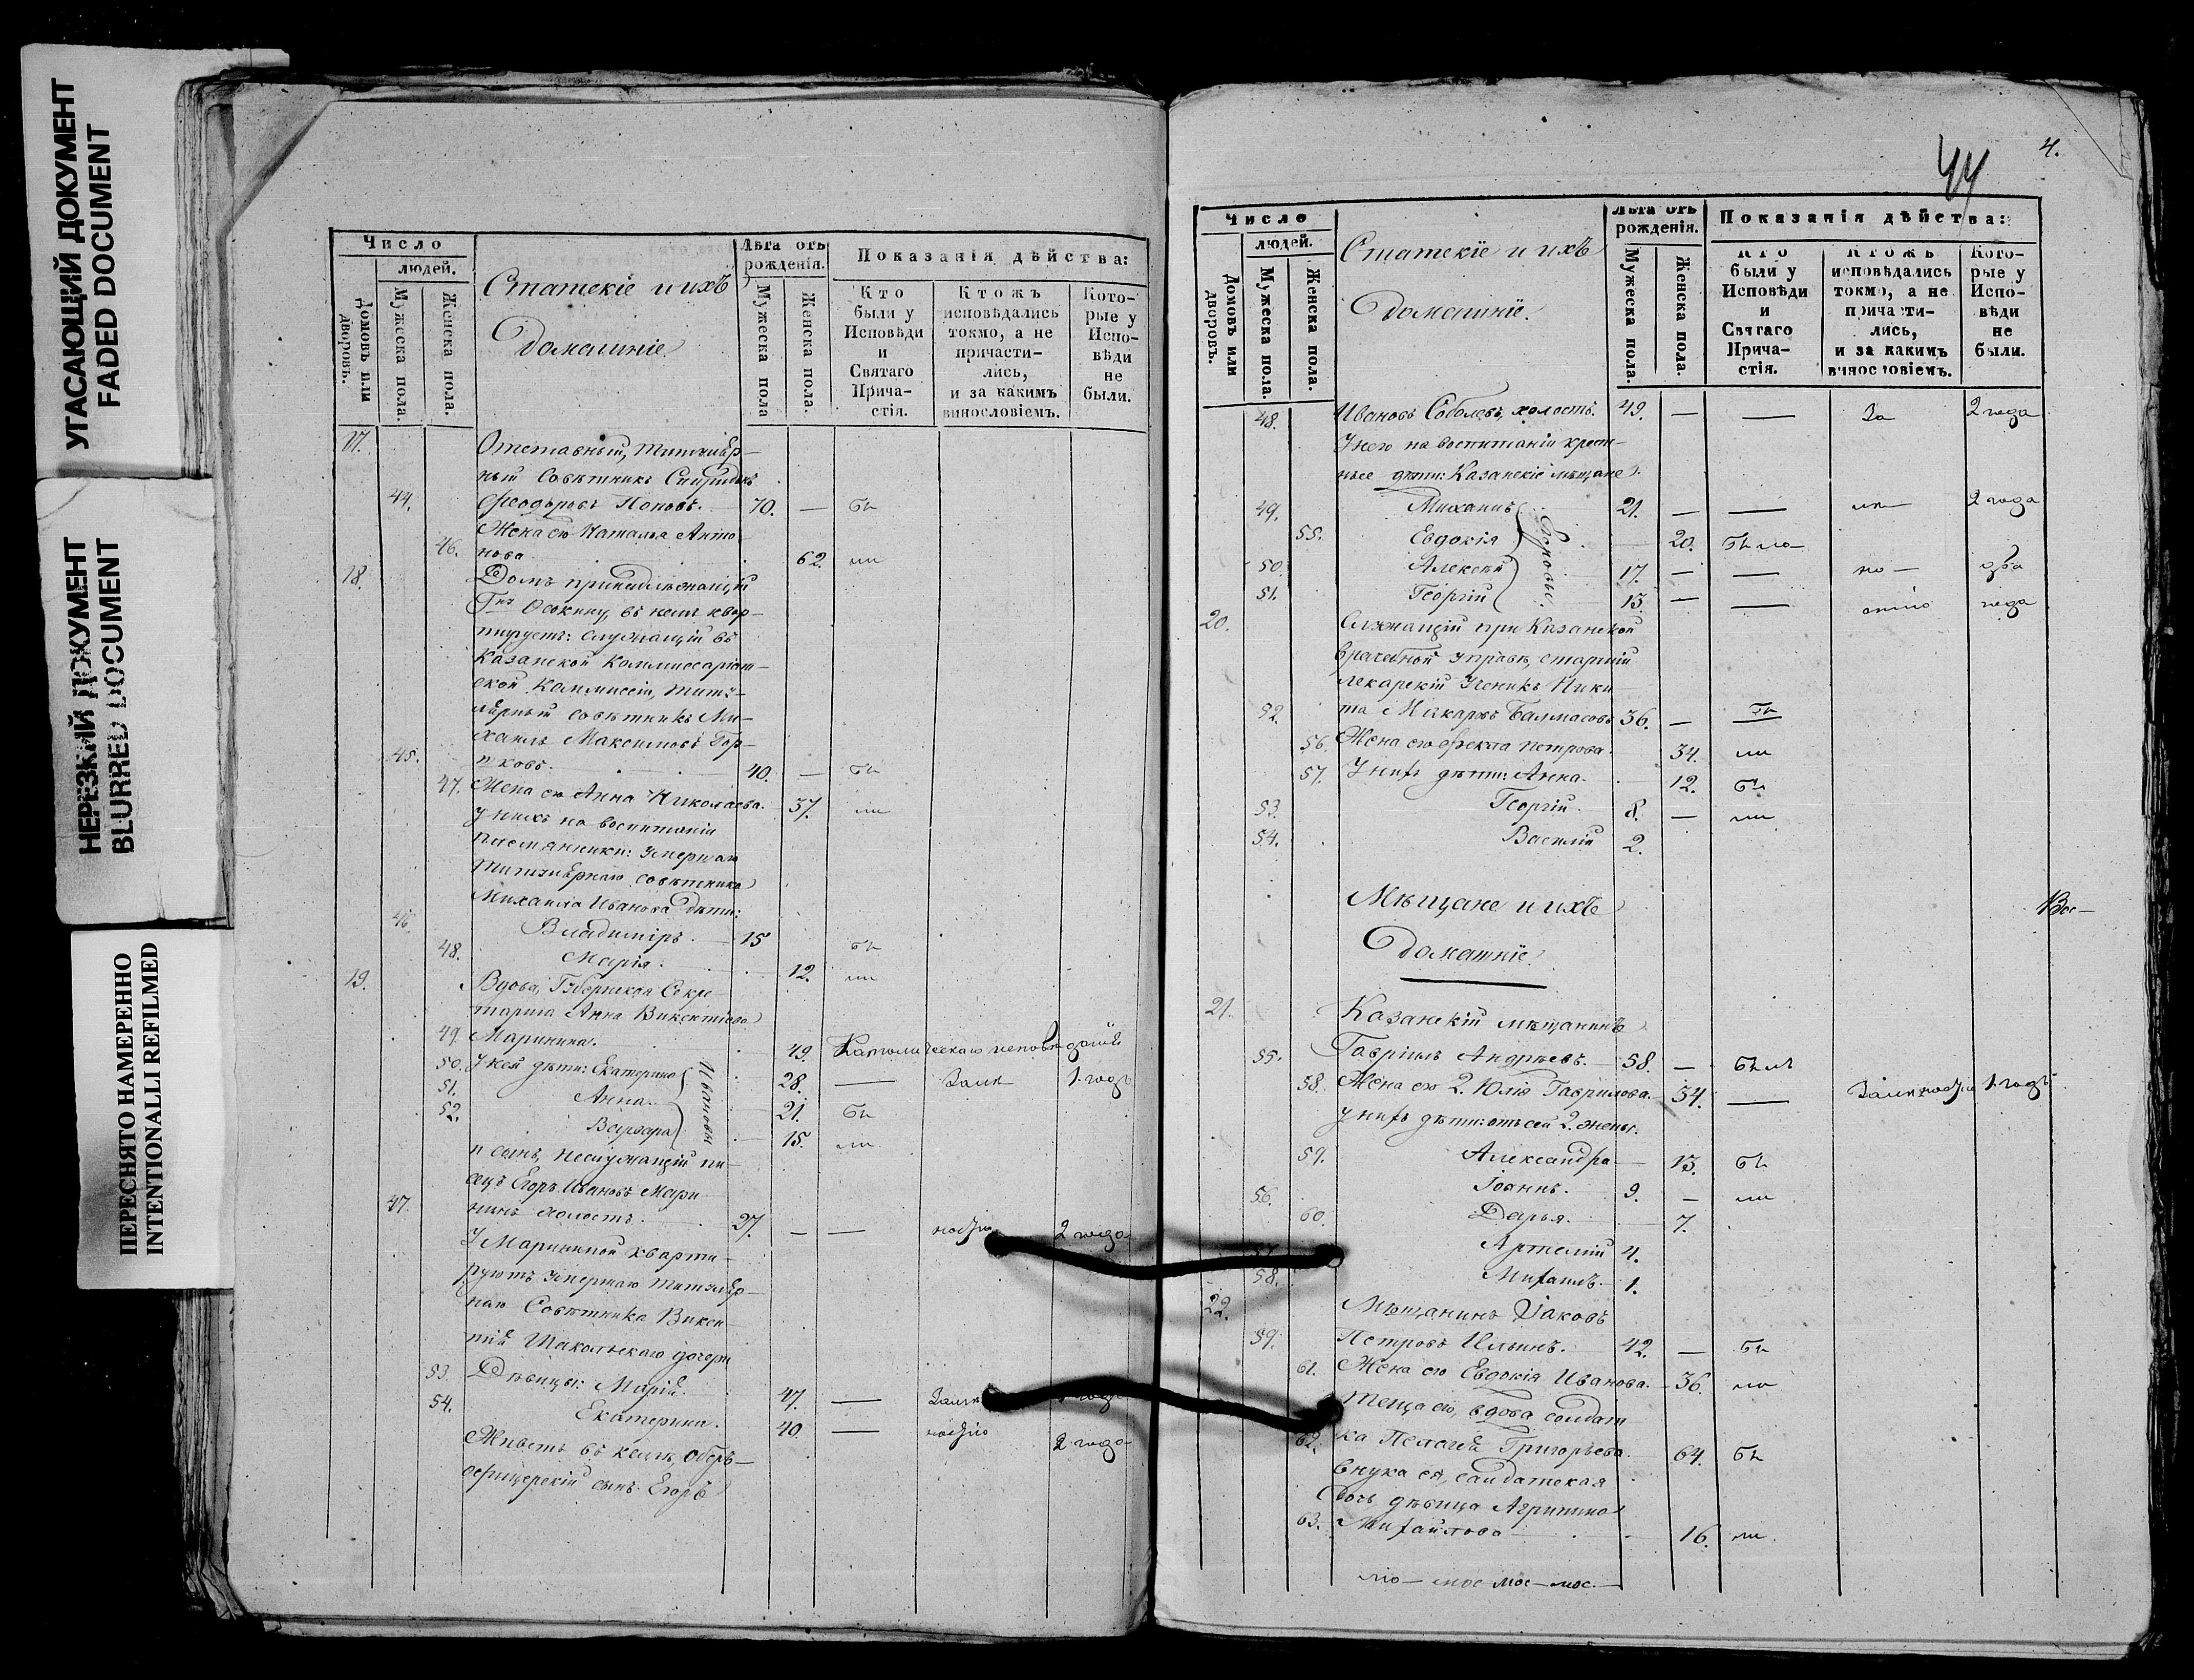 УГАСАЮЩИЙ ДОКУМЕНТ
FADED DOCUMENT
НЕРЕЗКИЙ ДОКУМЕНТ
BLURRED DOCUMENT
ПЕРЕСНЯТО НАМЕРЕННО
INTENTIONALLI REFILMED
Число
людей.
Домовъ или дворовъ.
Мужеска пола.
Женска пола.
Статскіе и ихъ
Домашніе.
Лѣта отъ рожденія.
Мужеска пола
Женска пола.
Показанія дѣйства:
Кто были у Исповѣди и Святаго Прича-стія.
Ктожъ исповѣдались токмо, а не причасти-лись, и за какимъ винословіемъ.
Кото-рые у Испо-вѣди не были.
17. Отставный, Титуляр-
ный Совѣтникъ Спиридонъ
44. Феодоровъ Поповъ. 70. — бы
Жена его Наталья Анто
46. нова 62. ли
18. Домъ принадлежащій
Гну Осокину, въ немъ квар-
тируетъ: служащій въ
Казанской Коммиссаріат-
ской Коммиссіи, титу-
лярный совѣтникъ Ми-
хаилъ Максимовъ Гор-
45. 40. — бы
47. Жена его Анна Николаева. 37. ли
у нихъ на воспитаніи
племянники: умершаго
титулярнаго совѣтника
Михаила Иванова дѣти:
46 Владиміръ. 15 бы
48. Марія. 12. ли
19. Вдова, Губернская Секре-
тарша Анна Викентіева
49. Маринина. 49. Католическаго исповѣданія
50. У ней дѣти: Екатерина 28. — 1. годъ
51. Анна. 21. бы
52. Варвара 15. ли
Ивановы
и сынъ, неслужащій пи-
сецъ Егоръ Ивановъ Мари-
47. нинъ холостъ. 27. — — 2 года
У Марининой кварти-
руютъ умершаго титуляр-
наго Совѣтника Викен-
тія дочери
53. Дѣвицы: Марія. 47. —
54. Екатерина. 40. — 2 года
Живетъ въ кельи, Оберъ-
офицерскій сынъ Егоръ
44 4.
Число
людей.
Домовъ или дворовъ.
Мужеска пола.
Женска пола.
Статскіе и ихъ
Домашніе.
Лѣта отъ рожденія.
Мужеска пола.
Женска пола.
Показанія дѣйства:
Кто были у Исповѣди и Святаго Прича-стія.
Ктожъ исповѣдались токмо, а не причасти-лись, и за какимъ винословіемъ.
Кото-рые у Испо-вѣди не были.
48. Ивановъ Соболевъ, холостъ. 49. — — За 2 года
У него на воспитаніи крест-
ные дѣти: Казанскіе мѣщане
49. Михаилъ 21. — — 2 года
55. Евдокія 20.
50. Алексѣй 17. — —
51. Георгій 13. — — года
20. Служащій при Казанской
Врачебной Управѣ, старшій
лекарскій Ученикъ Ники
52. та Макаровъ Балмасовъ 36. — бы
56. Жена его Фекла Петрова. 34. ли
57. У нихъ дѣти: Анна. 12. бы
53. Георгій. 8. — ли
54. Василій 2.
Мѣщане и ихъ
Домашніе.
21. Казанскій мѣщанинъ
55. Гавріилъ Андреевъ. 58. —
58. Жена его 2. Юлія Гаврилова. 34. — 1. годъ
у нихъ дѣти: отъ сей 2. жены.
59. Александра 13. бы
56. Іоаннъ. 9. — ли
60. Дарья. 7.
57. Артемій 4.
58. Михаилъ. 1.
22. Мѣщанинъ Іаковъ
59. Петровъ Ильинъ. 42. — бы
61. Жена его Евдокія Иванова. 36. ли
Теща его, вдова солдат
62. ка Пелагея Григорьева 64. бы
Внука ея, солдатская
дочь дѣвица Агрипина
63. Михайлова 16. ли.